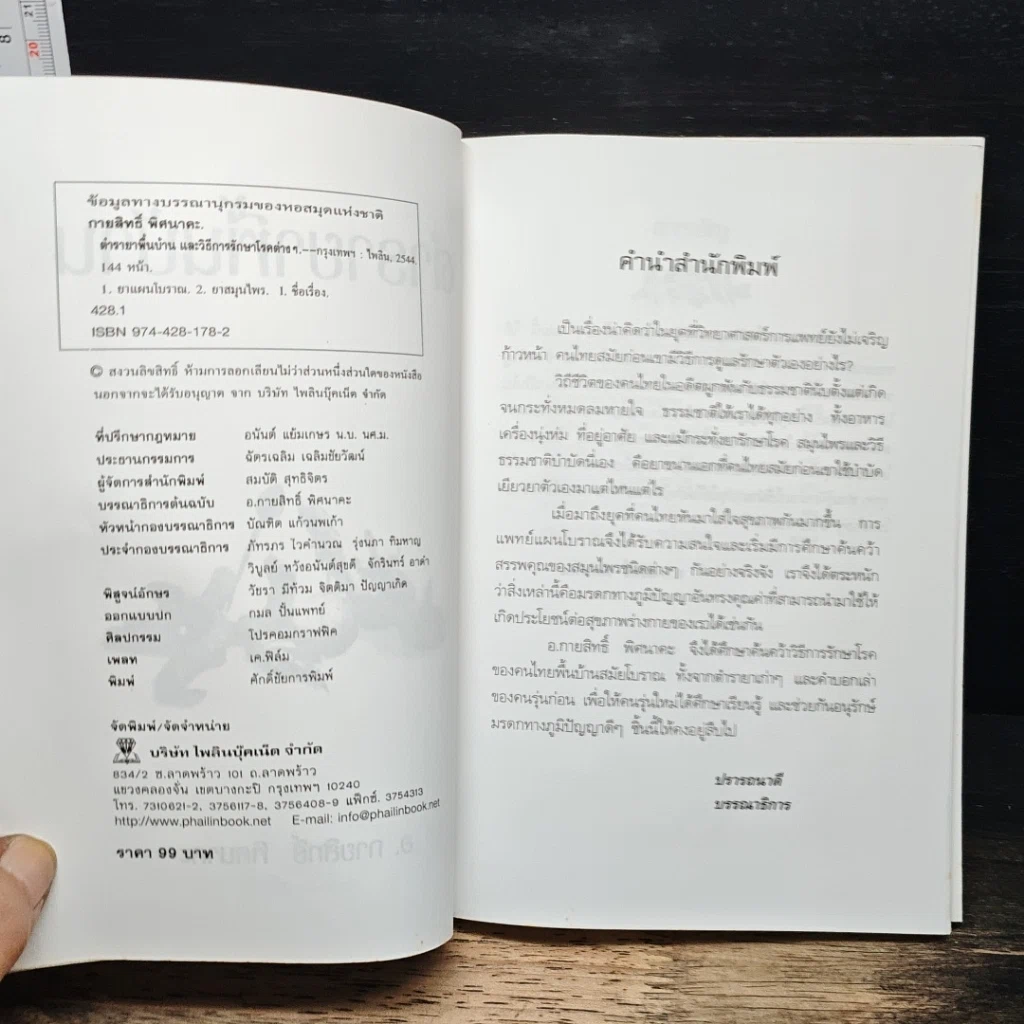 8
20
21
ข้อมูลทางบรรณานุกรมของหอสมุดแห่งชาติ
กายสิทธิ์ พิศนาคะ.
ตำรายาพื้นบ้าน และวิธีการรักษาโรคต่าง ๆ.--กรุงเทพฯ : ไพลิน, 2544.
144 หน้า.
1. ยาแผนโบราณ. 2. ยาสมุนไพร. 1. ชื่อเรื่อง.
428.1
ISBN 974-428-178-2
© สงวนลิขสิทธิ์ ห้ามการลอกเลียนไม่ว่าส่วนหนึ่งส่วนใดของหนังสือ
นอกจากจะได้รับอนุญาต จาก บริษัท ไพลินบุ๊คเน็ต จำกัด
ที่ปรึกษากฎหมาย อนันต์ แย้มเกษร น.บ. นศ.ม.
ประธานกรรมการ ฉัตรเฉลิม เฉลิมชัยวัฒน์
ผู้จัดการสำนักพิมพ์ สมบัติ สุทธิจิตร
บรรณาธิการต้นฉบับ อ.กายสิทธิ์ พิศนาคะ
หัวหน้ากองบรรณาธิการ บัณฑิต แก้วนพเก้า
ประจำกองบรรณาธิการ ภัทรภร ไวคำนวณ รุ่งนภา ทิมหาญ
วิบูลย์ หวังอนันต์สุขดี จักรินทร์ อาดำ
พิสูจน์อักษร วัยรา มีท้วม จิตติมา ปัญญาเกิด
ออกแบบปก กมล ปิ่นแพทย์
ศิลปกรรม โปรคอมกราฟฟิค
เพลท เค.ฟิล์ม
พิมพ์ ศักดิ์ชัยการพิมพ์
จัดพิมพ์/จัดจำหน่าย
บริษัท ไพลินบุ๊คเน็ต จำกัด
834/2 ซ.ลาดพร้าว 101 ถ.ลาดพร้าว
แขวงคลองจั่น เขตบางกะปิ กรุงเทพฯ 10240
โทร. 7310621-2, 3756117-8, 3756408-9 แฟ็กซ์. 3754313
http://www.phailinbook.net E-mail: info@phailinbook.net
ราคา 99 บาท
คำนำสำนักพิมพ์
เป็นเรื่องน่าคิดว่าในยุคที่วิทยาศาสตร์การแพทย์ยังไม่เจริญ
ก้าวหน้า คนไทยสมัยก่อนเขามีวิธีการดูแลรักษาตัวเองอย่างไร?
วิถีชีวิตของคนไทยในอดีตผูกพันกับธรรมชาตินับตั้งแต่เกิด
จนกระทั่งหมดลมหายใจ ธรรมชาติให้เราได้ทุกอย่าง ทั้งอาหาร
เครื่องนุ่งห่ม ที่อยู่อาศัย และแม้กระทั่งยารักษาโรค สมุนไพรและวิธี
ธรรมชาติบำบัดนี่เอง คือยาขนานเอกที่คนไทยสมัยก่อนเขาใช้บำบัด
เยียวยาตัวเองมาแต่ไหนแต่ไร
เมื่อมาถึงยุคที่คนไทยหันมาใส่ใจสุขภาพกันมากขึ้น การ
แพทย์แผนโบราณจึงได้รับความสนใจและเริ่มมีการศึกษาค้นคว้า
สรรพคุณของสมุนไพรชนิดต่างๆ กันอย่างจริงจัง เราจึงได้ตระหนัก
ว่าสิ่งเหล่านี้คือมรดกทางภูมิปัญญาอันทรงคุณค่าที่สามารถนำมาใช้ให้
เกิดประโยชน์ต่อสุขภาพร่างกายของเราได้เช่นกัน
อ.กายสิทธิ์ พิศนาคะ จึงได้ศึกษาค้นคว้าวิธีการรักษาโรค
ของคนไทยพื้นบ้านสมัยโบราณ ทั้งจากตำรายาเก่าๆ และคำบอกเล่า
ของคนรุ่นก่อน เพื่อให้คนรุ่นใหม่ได้ศึกษาเรียนรู้ และช่วยกันอนุรักษ์
มรดกทางภูมิปัญญาดีๆ ชิ้นนี้ให้คงอยู่สืบไป
ปรารถนาดี
บรรณาธิการ